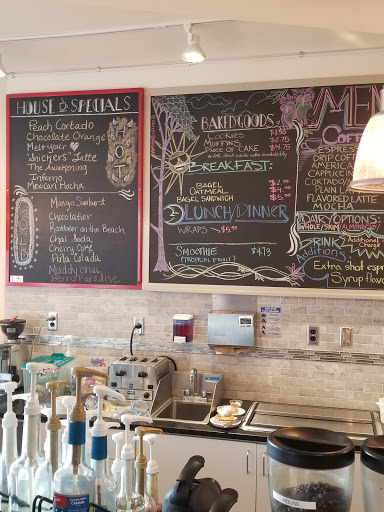 HOUSE SPECIALS
HOT
Peach Cortado
Chocolate Orange
Melt your
Snickers Latte
The Awakening
Inferno
Mexican Mocha
COLD
Mango Sunburst
Chocolatier
Rootbeer on the Beach
Chai Soda
Cherry Coke
Piña Colada
Muddy Chai
Berry Paradise
BAKED GOODS
COOKIES
MUFFINS $2.75
PIECE OF CAKE $4.75
BREAKFAST:
BAGEL
OATMEAL
BAGEL SANDWICH
LUNCH/DINNER
WRAPS
SMOOTHIE $4.73
(TROPICAL FRUIT)
MEN
COFF
ESPRESS
DRIP COFF
AMERICA
CAPPUCCIN
CORTADO
PLAN L
FLAVORED LATTE
MOCHA
DAIRY OPTIONS:
WHOLE/SKIM/ALMOND
Additional
Charge
DRINK
Additions
Extra shot esp
Syrup flav
HOUSE